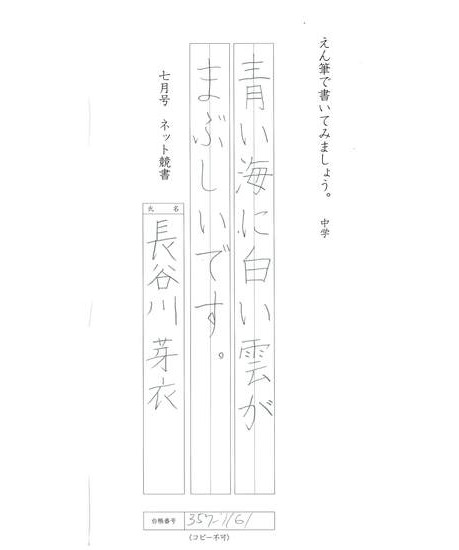 えん筆で書いてみましょう。 中学
青い海に白い雲が
まぶしいです。
七月号 ネット競書
氏名
長谷川 芽衣
台帳番号 357-1161
(コピー不可)